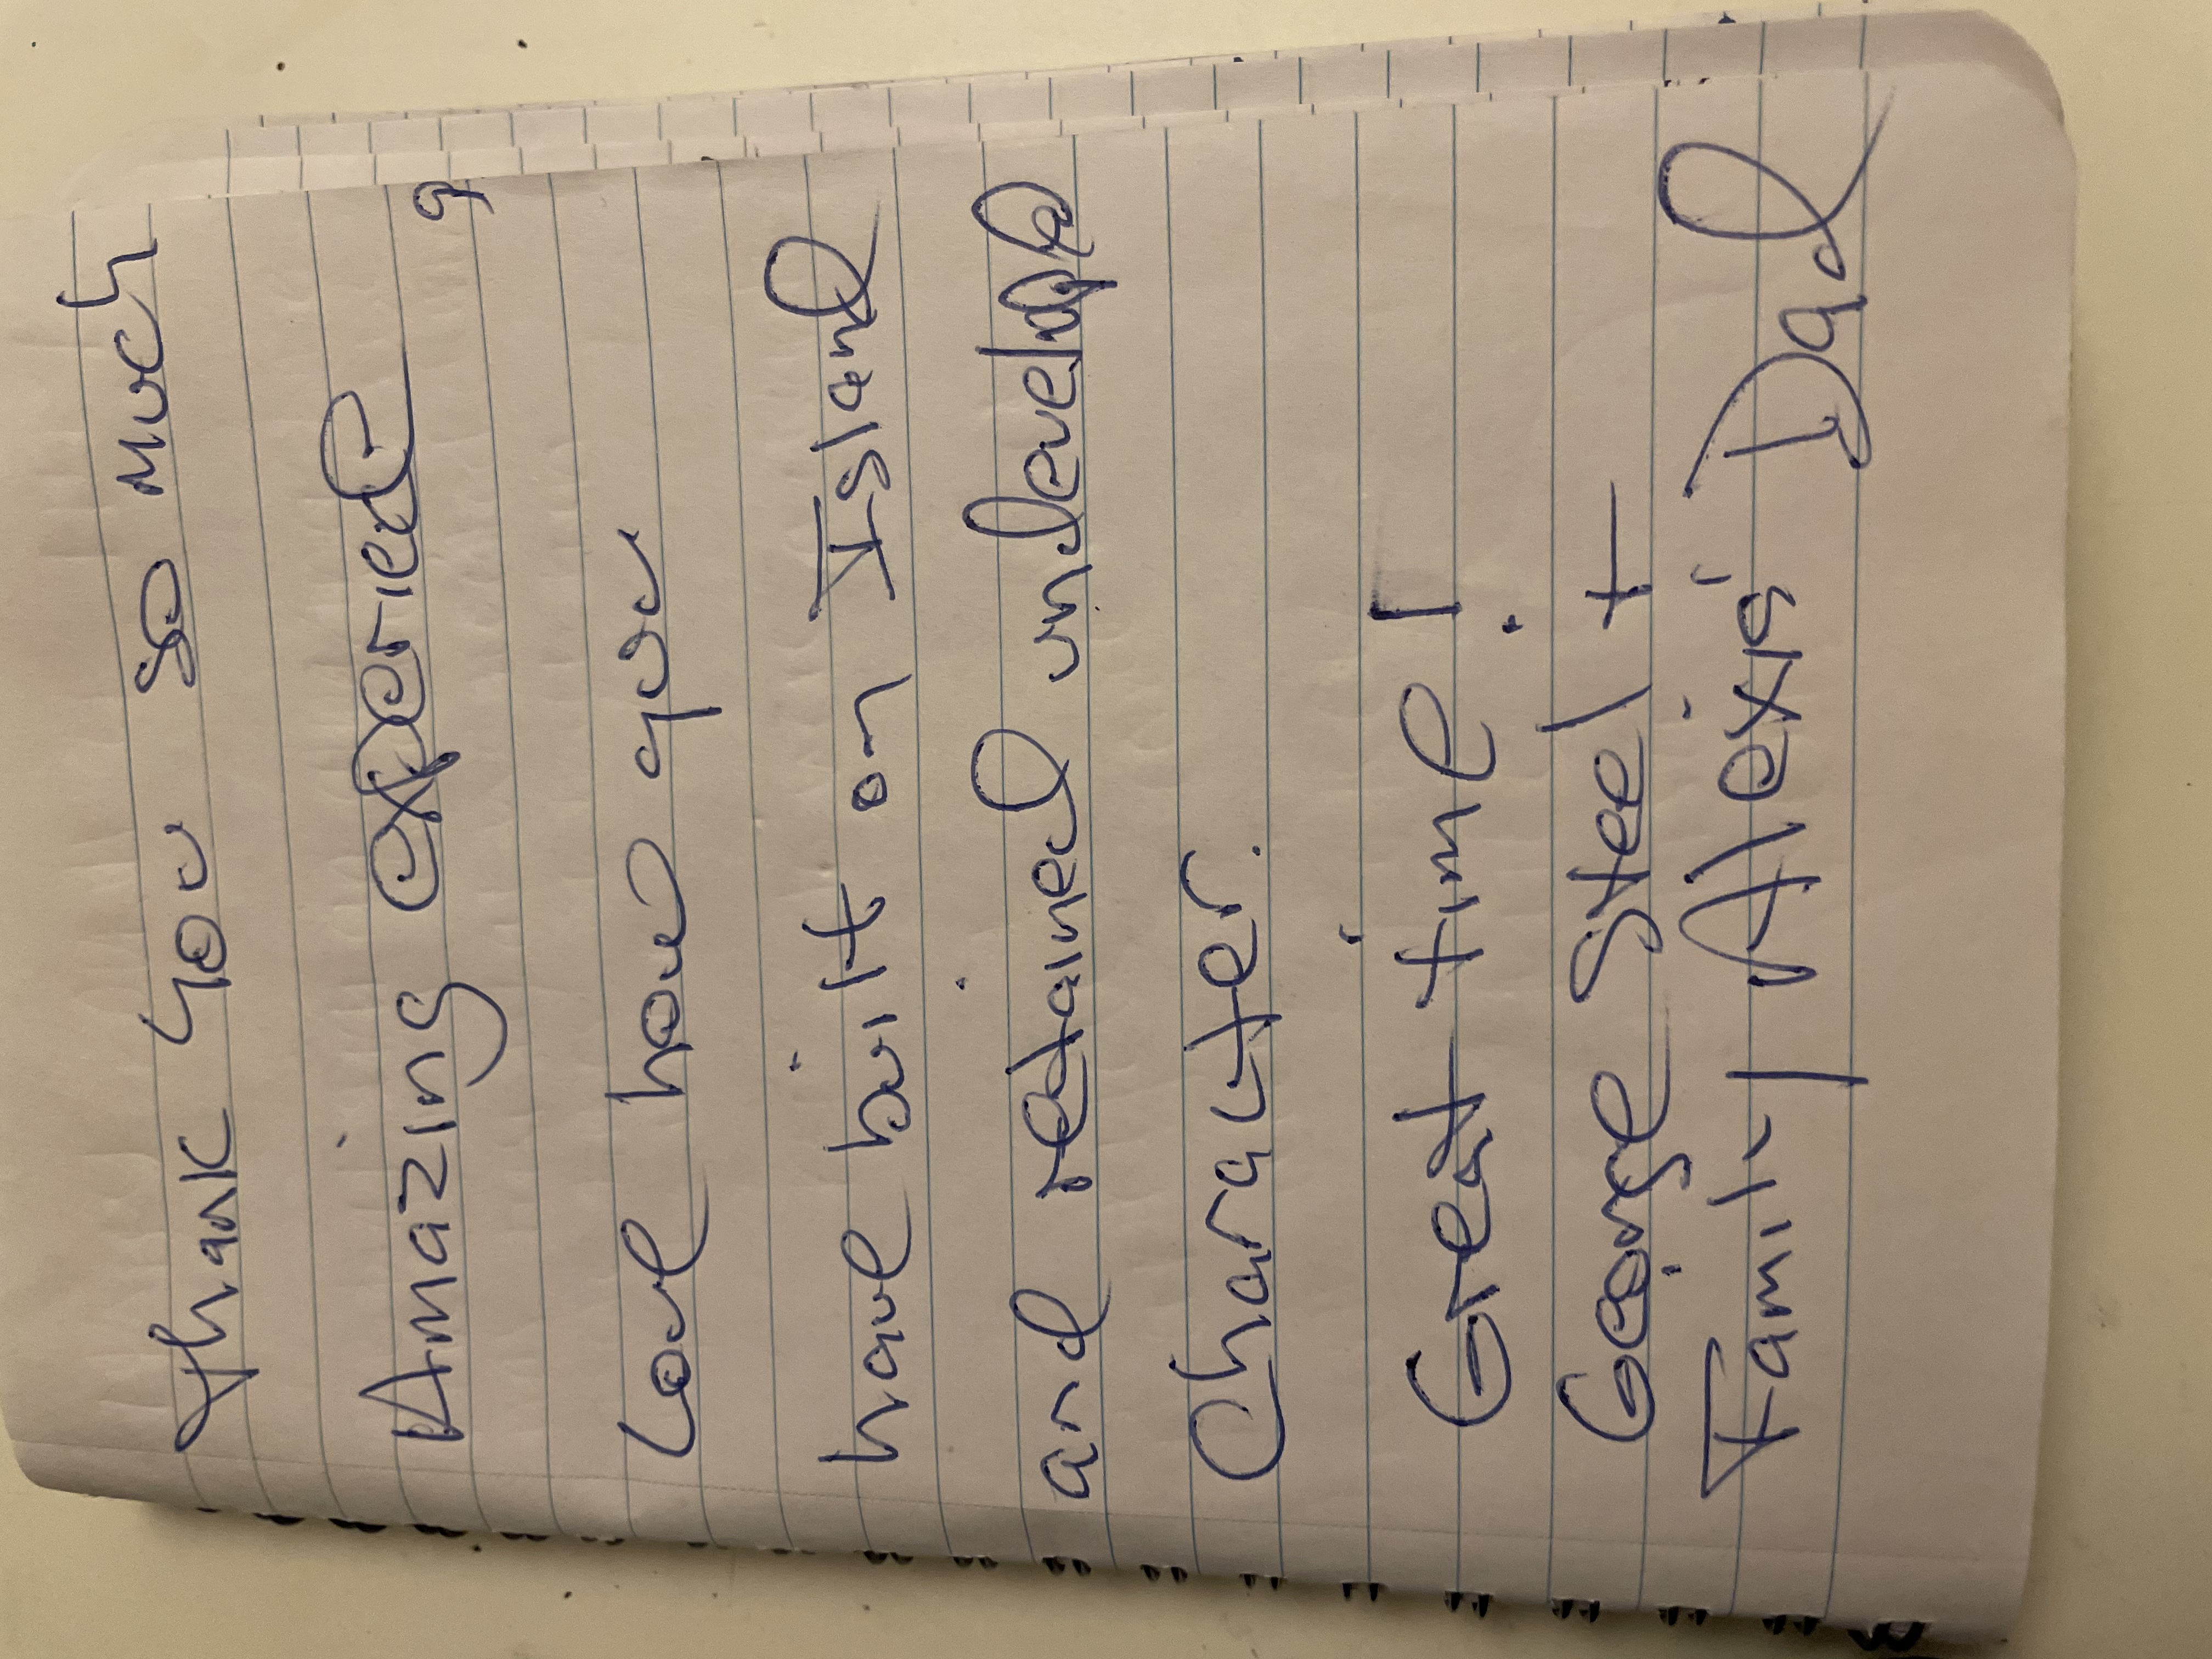 Thank you so much
Amazing experied
Love how you
have built on Island
and retained undevelope
Character.
Great time!
George Steel +
Family Alexis' Dad